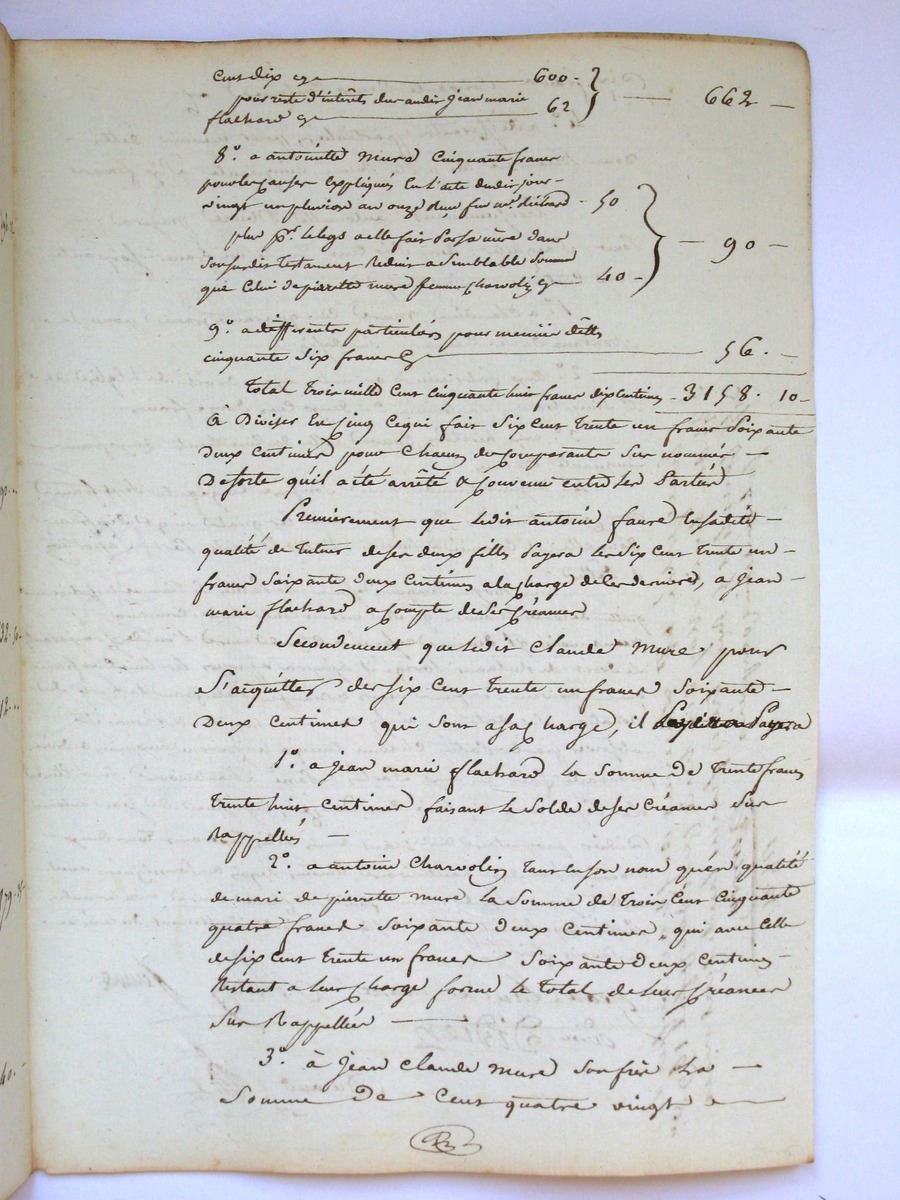 Cent dix cy 600 -
pour reste d'intérêts dus audit jean marie 662 -
flachard cy 62
8.° a antoinette mure Cinquante francs
pour les causes Expliqués En l'acte dudit jour
vingt un pluviose an onze Reçu fu m.e - 50
plus p.r le legs a elle fait Par sa mère dans 90 -
son susdit testament Reduit a Semblable Somme
que Celui de pierrette mure femme charvolin cy 40 -
9.° a différents particuliers pour menues dettes
cinquante Six francs Cy 56. -
Total Trois mille Cent cinquante huit francs dix Centimes - 3158. 10 -
à Diviser En cinq Ce qui fait Six Cent Trente un francs Soixante
Deux Centimes pour Chacun des comparants Sus nommés -
De sorte qu'il a été arrêté & Convenu entre les Parties
Premièrement que ledit antoine faure En sa dite -
qualité de Tuteur de ses deux filles Payera les Six Cent Trente un -
francs Soixante deux Centimes a la charge de Ces dernieres, a jean -
marie flachard a Compte de Ses Créances
Secondement que ledit Claude Mure pour
S'acquitter des six Cent Trente un francs Soixante -
Deux Centimes qui Sont a Sa Charge, il Payera
1.° a jean marie flachard la Somme de Trente francs
Trente huit Centimes faisant le Solde de ses Créances Sus
Rappellés -
2.° a antoine Charvolin tant en son nom qu'en qualité
de mari de pierrette mure la Somme de Trois Cent Cinquante
quatre francs Soixante deux Centimes, qui avec Celle
de six Cent Trente un francs Soixante deux Centimes -
Restant a leur Charge forme le Total de leurs Créances
Sus Rappellées -
3.° à jean Claude mure Son frère La -
Somme De Cent quatre vingt